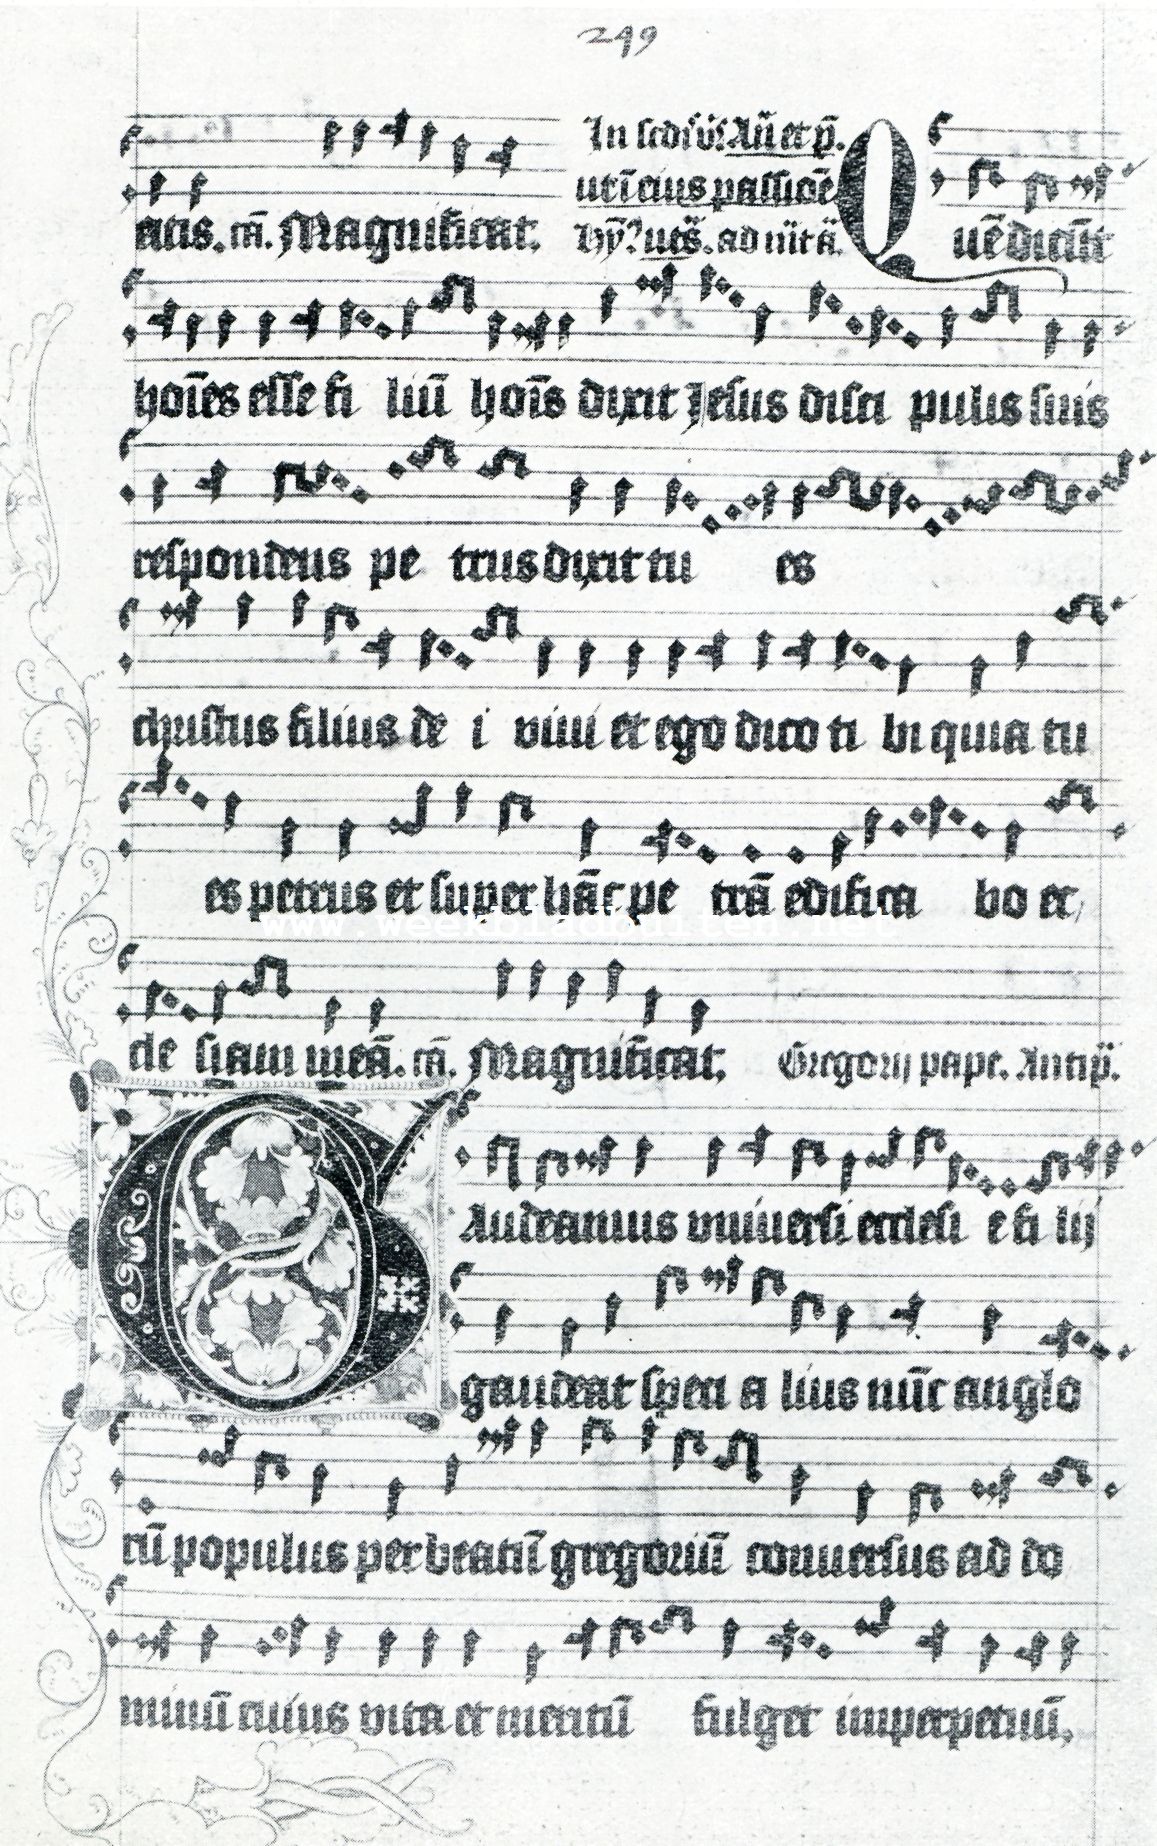 249
In scdis vs̄ Añ et p̄.
utī eius passioē
atis. cā. Magnificat. hȳ? utc̄s. ad nīt ā. Quē dicūt
hoīes esse fi liū hoīs dixit Jesus disci pulis suis
respondens pe trus dixit tu es
christus filius de i viui et ego dico ti bi quia tu
es petrus et super hāc pe trā edifica bo ec
cle siam meā. cā. Magnificat. Gregorij pape. Antip̄.
Gaudeamus vniuersi ecclesi e fi lij
gaudeat speci a lius nūc anglo
rū populus per beatū gregoriū conuersus ad do
minū cuius vita et meritū fulget imperpetuū.
www.weekbladbuiten.net